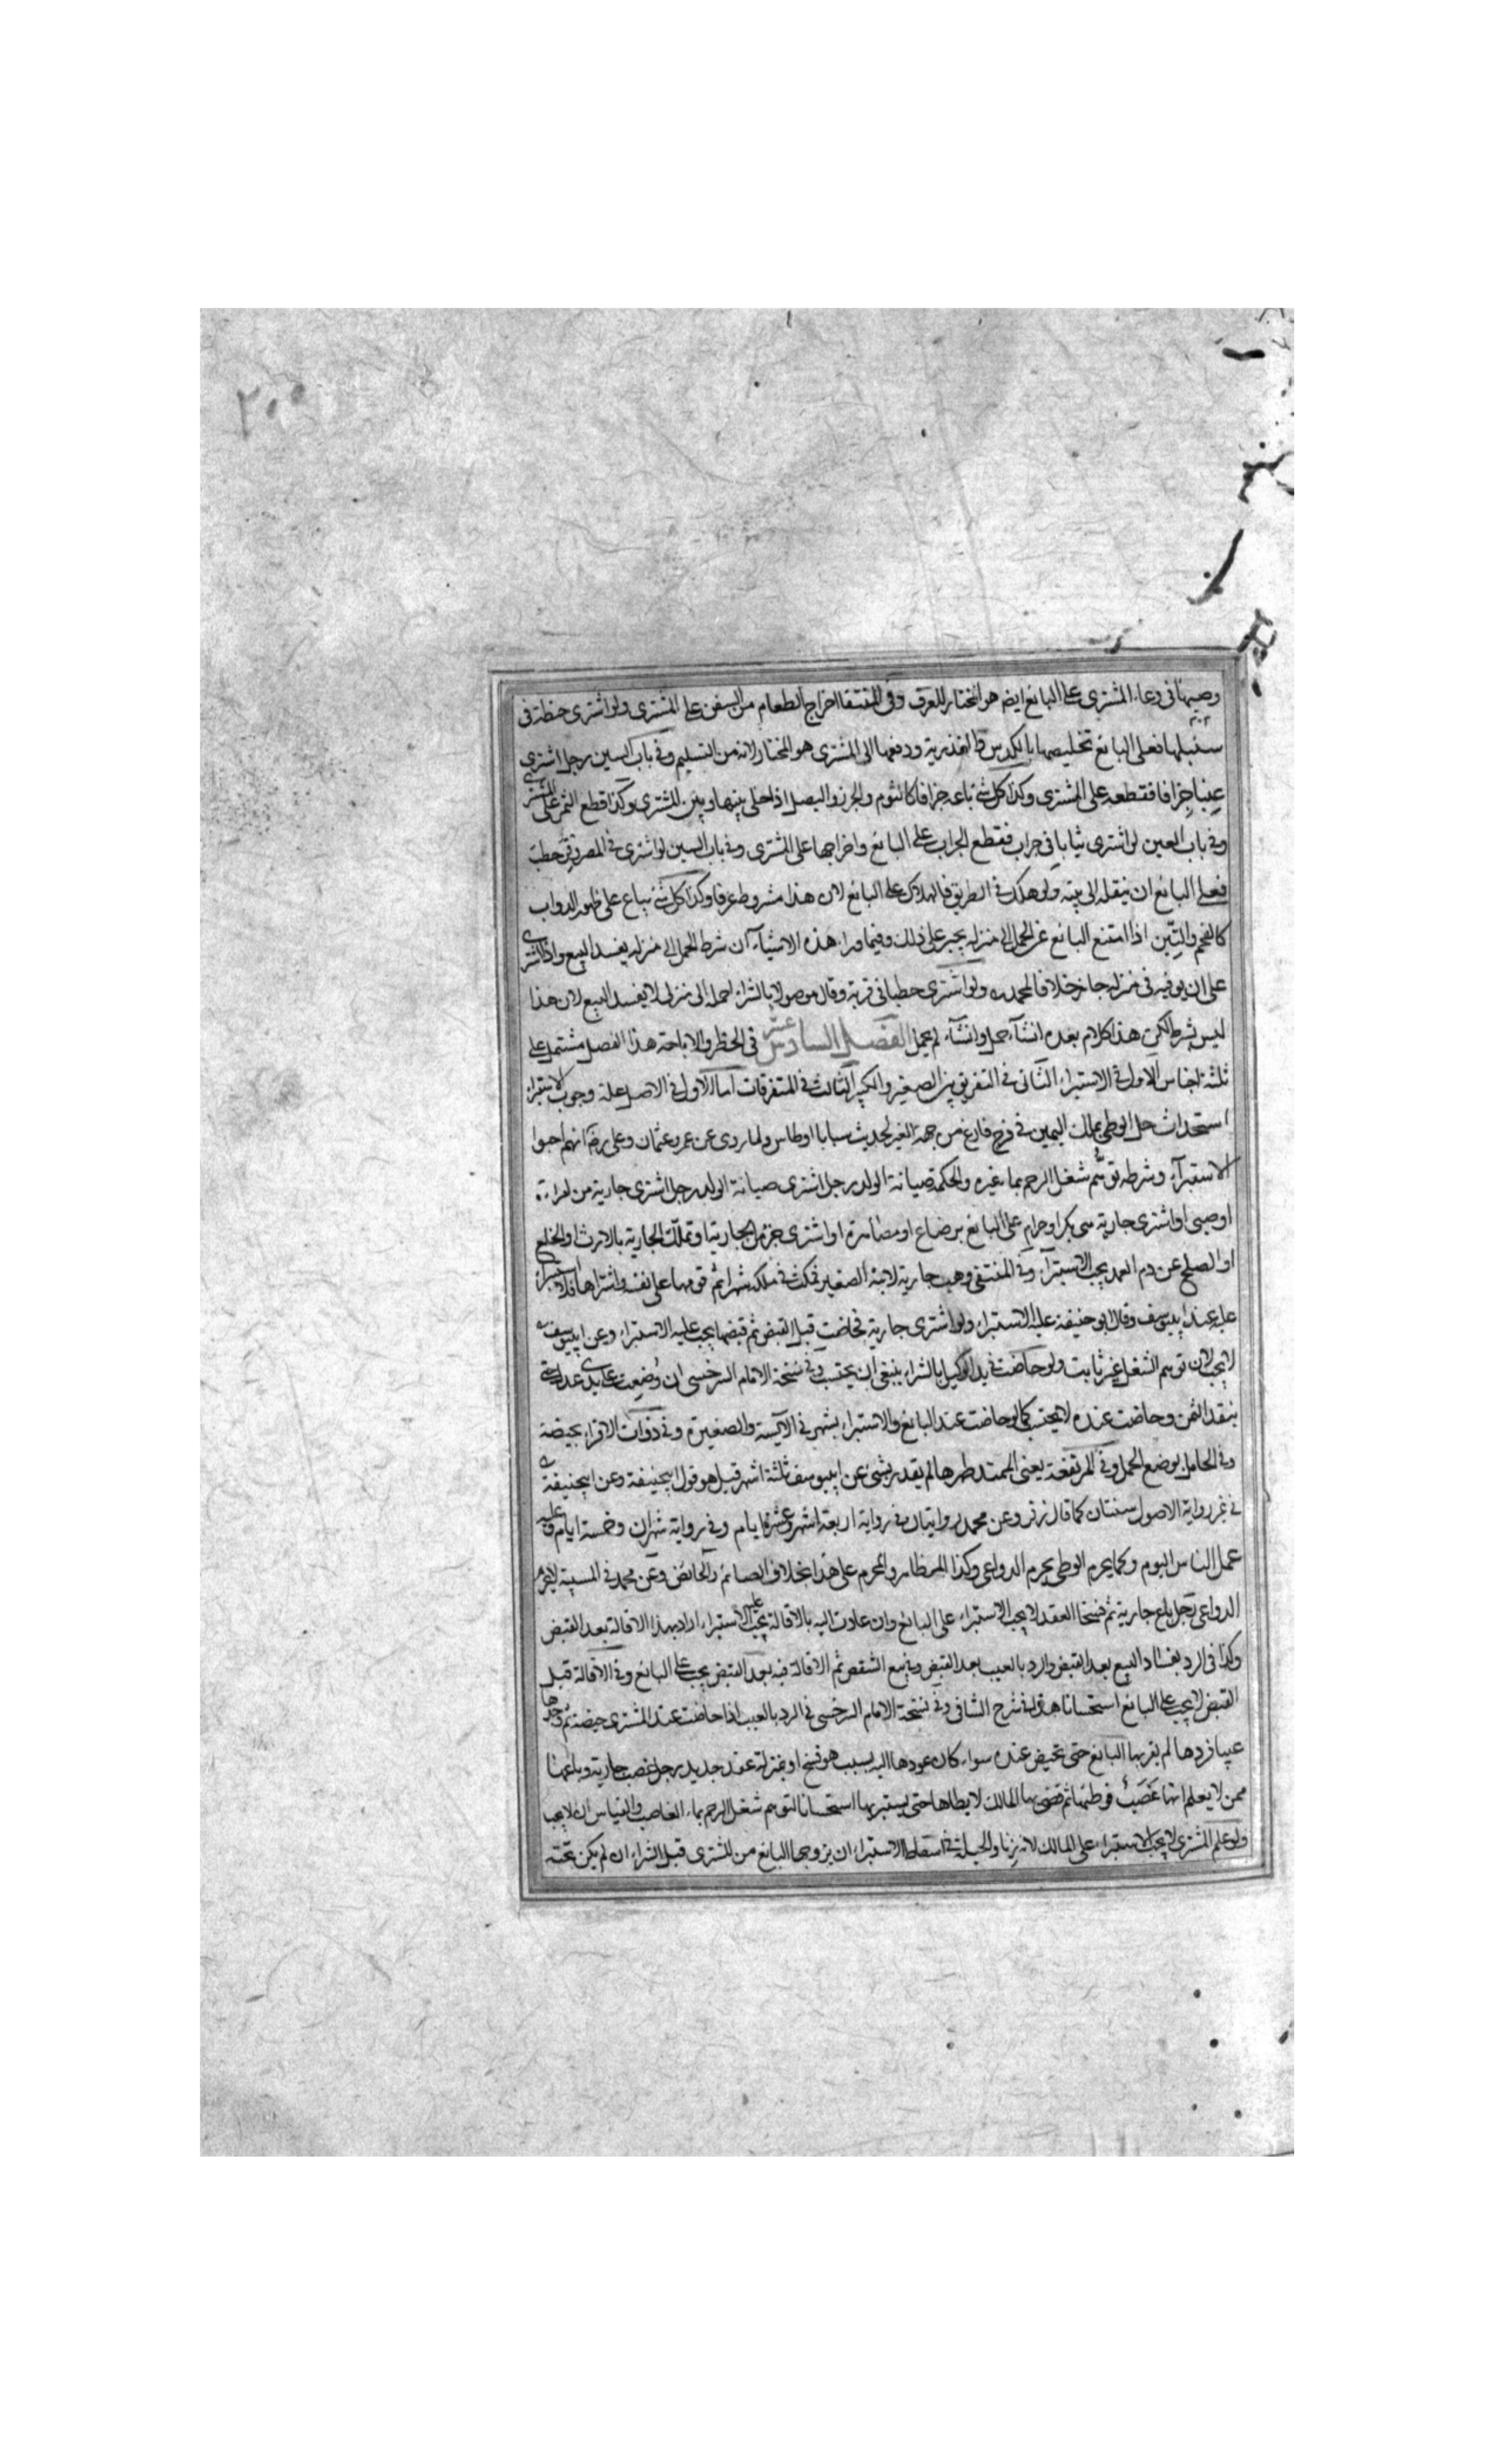 ٢٠٥
وصبها فى وعاء المشترى على البائع ايضا هو المختار للعرف وفى المنتقا اخراج الطعام من السفن على المشترى ولو اشترى حنطة فى
سنبلها فعلى البائع تخليصها بالكدس والتذرية ودفعها الى المشترى هو المختار لانه من التسليم وفى باب السين رجل اشترى
عنبا جزافا فقطعه على المشترى وكذا كل شئ باعه جزافا كالثوم والجزر والبصل اذا خلى بينها وبين المشترى وكذا قطع الثمر على المشترى
وفى باب العين لو اشترى ثيابا فى جراب ففتح الجراب على البائع واخراجها على المشترى وفى باب السين لو اشترى فى المصر وقر حطب
فعلى البائع ان ينقله الى بيته ولو هلك فى الطريق فالهلاك على البائع لان هذا مشروط عرفا وكذا كل شئ يباع على ظهور الدواب
كالفحم والتبن اذا امتنع البائع عن الحمل الى منزله يجبر على ذلك وفيما وراء هذه الاشياء ان شرط الحمل الى منزله يفسد البيع واذا اشترى
على ان يوفيه فى منزله جاز خلافا لمحمد ولو اشترى حطبا فى قرية وقال موصولا بالشراء احمله الى منزلى لا يفسد البيع لان هذا
ليس بشرط لكن هذا كلام بعده ان شاء حمل وان شاء لم يحمل الفصل السادس عشر فى الحظر والاباحة هذا الفصل مشتمل على
ثلثة اجناس الاول فى الاستبراء الثانى فى التفريق بين الصغير والكبير الثالث فى المتفرقات اما الاول فى الاصل علة وجوب الاستبراء
استحداث حل الوطى بملك اليمين فى فرج فارغ من جهة الغير لحديث سبايا اوطاس ولما روى عن عمر وعثمان وعلى رضى انهم اوجبوا
الاستبرآء وشرطه توهم شغل الرحم بماء غيره والحكمة صيانة الولد رجل اشترى صيانة الولد رجل اشترى جارية من امراءة
او صبى او اشترى جارية هى بكر او حرام على البائع برضاع او مصاهرة او اشترى جزء من الجارية او تملك الجارية بالارث او الخلع
او الصلح عن دم العمد يجب الاستبرآء وفى المنتقى وهب جارية لابنه الصغير فمكث فى ملكه شهرا ثم قومها على نفسه واشتراها فلا استبراء
عليه عند ابى يوسف وقال ابو حنيفة عليه الاستبراء ولو اشترى جارية فحاضت قبل القبض ثم قبضها يجب عليه الاستبراء وعن ابى يوسف
لا يجب لان توهم الشغل غير ثابت ولو حاضت فى يد الوكيل بالشراء ينبغى ان يحتسب وفى نسخة الامام السرخسى ان وضعت على يدى عدل حتى
ينقد الثمن وحاضت عنده لا يحتسب كما لو حاضت عند البائع والاستبراء بشهر فى الآيسة والصغيرة وفى ذوات الاقراء بحيضة
وفى الحامل بوضع الحمل وفى المرتفعة يعنى الممتد طهرها لم يقدر بشئ عن ابى يوسف ثلثة اشهر قيل هو قول ابى حنيفة وعن ابى حنيفة
فى غير رواية الاصول سنتان كما قال زفر وعن محمد روايتان فى رواية اربعة اشهر وعشرة ايام وفى رواية شهران وخمسة ايام وعليه
عمل الناس اليوم وكما يحرم الوطى يحرم الدواعى وكذا المظاهر والمحرم على هذا بخلاف الصائم والحائض وعن محمد فى المسبية لا يحرم
الدواعى رجل باع جارية ثم فسخا العقد لا يجب الاستبراء على البائع وان عادت اليه بالاقالة يجب عليه الاستبراء اراد بهذا الاقالة بعد القبض
وكذا فى الرد بفساد البيع بعد القبض والرد بالعيب بعد القبض وفى بيع الشقص ثم الاقالة فيه بعد القبض يجب على البائع وفى الاقالة قبل
القبض لا يجب على البائع استحسانا هذا فى شرح الشافى وفى نسخة الامام السرخسى فى الرد بالعيب اذا حاضت عند المشترى حيضة ثم وجد بها
عيبا فردها لم يقربها البائع حتى تحيض عنده سواء كان عودها اليه بسبب هو فسخ او بمنزلة عقد جديد رجل غصب جارية وباعها
ممن لا يعلم انها غصب فوطئها ثم قضى بها للمالك لا يطاها حتى يستبريها استحسانا لتوهم شغل الرحم بماء الغاصب والقياس ان لا يجب
ولو علم المشترى لا يجب الاستبراء على المالك لانه زنا والحيلة فى اسقاط الاستبراء ان يزوجها البائع من المشترى قبل الشراء ان لم يكن تحته